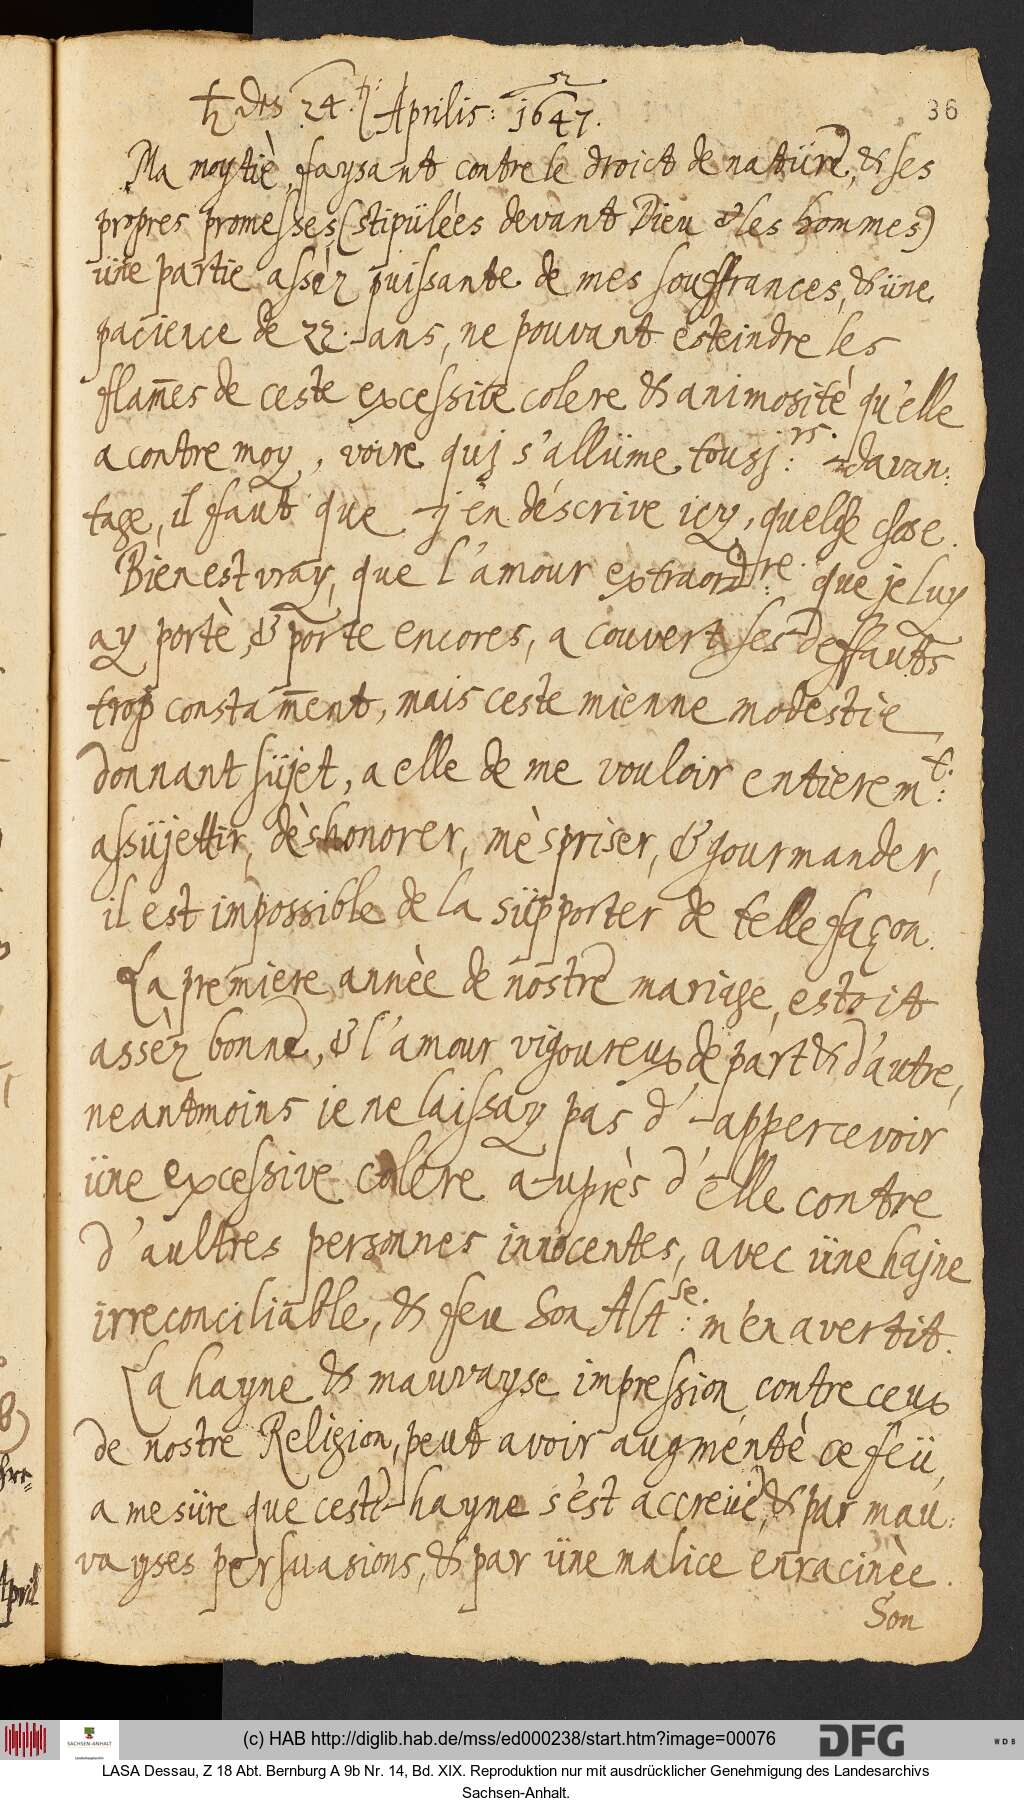 ♄ des 24. Aprilis: 1647.
52
36
Ma moytiè, faysant contre le droict de natüre, & ses
propres promesses, (stipülèes devant Dieu & les hommes)
üne partie assèz puissante de mes souffrances, & üne
pacience de 22. ans, ne pouvant esteindre les
flam̄es de ceste excessive colere & animosité qu'elle
a contre moy, voire quj s'allüme tousj:rs. davan:
tage, il faut que j'en déscrive icy, quelq chose.
Bien est vray, que l'amour extraord:re. que je luy
ay portè, & porte encores, a couvert ses deffauts
trop constam̄ent, mais ceste mienne modestie
donnant süjet, a elle de me vouloir entierem:t.
assüjettir, dèshonorer, mèspriser, & gourmander,
il est impossible de la süpporter de telle façon.
La premiere annèe de nostre mariage, estoit
assèz bonne, & l'amour vigoureux de part & d'autre,
neantmoins ie ne laissay pas d'appercevoir
üne excessive colere auprès d'elle contre
d'aultres personnes innocentes, avec üne hajne
irreconciliable, & feu Son Alt:se. m'en avertit.
La hayne & mauvayse impression, contre ceux
de nostre Religion, peut avoir augmentè ce feü,
a mesüre que ceste hayne s'est accreüe, & par mau:
vayses persuasions, & par üne malice enracinèe.
Son
April
(c) HAB http://diglib.hab.de/mss/ed000238/start.htm?image=00076
SACHSEN-ANHALT
DFG
W D B
LASA Dessau, Z 18 Abt. Bernburg A 9b Nr. 14, Bd. XIX. Reproduktion nur mit ausdrücklicher Genehmigung des Landesarchivs
Sachsen-Anhalt.